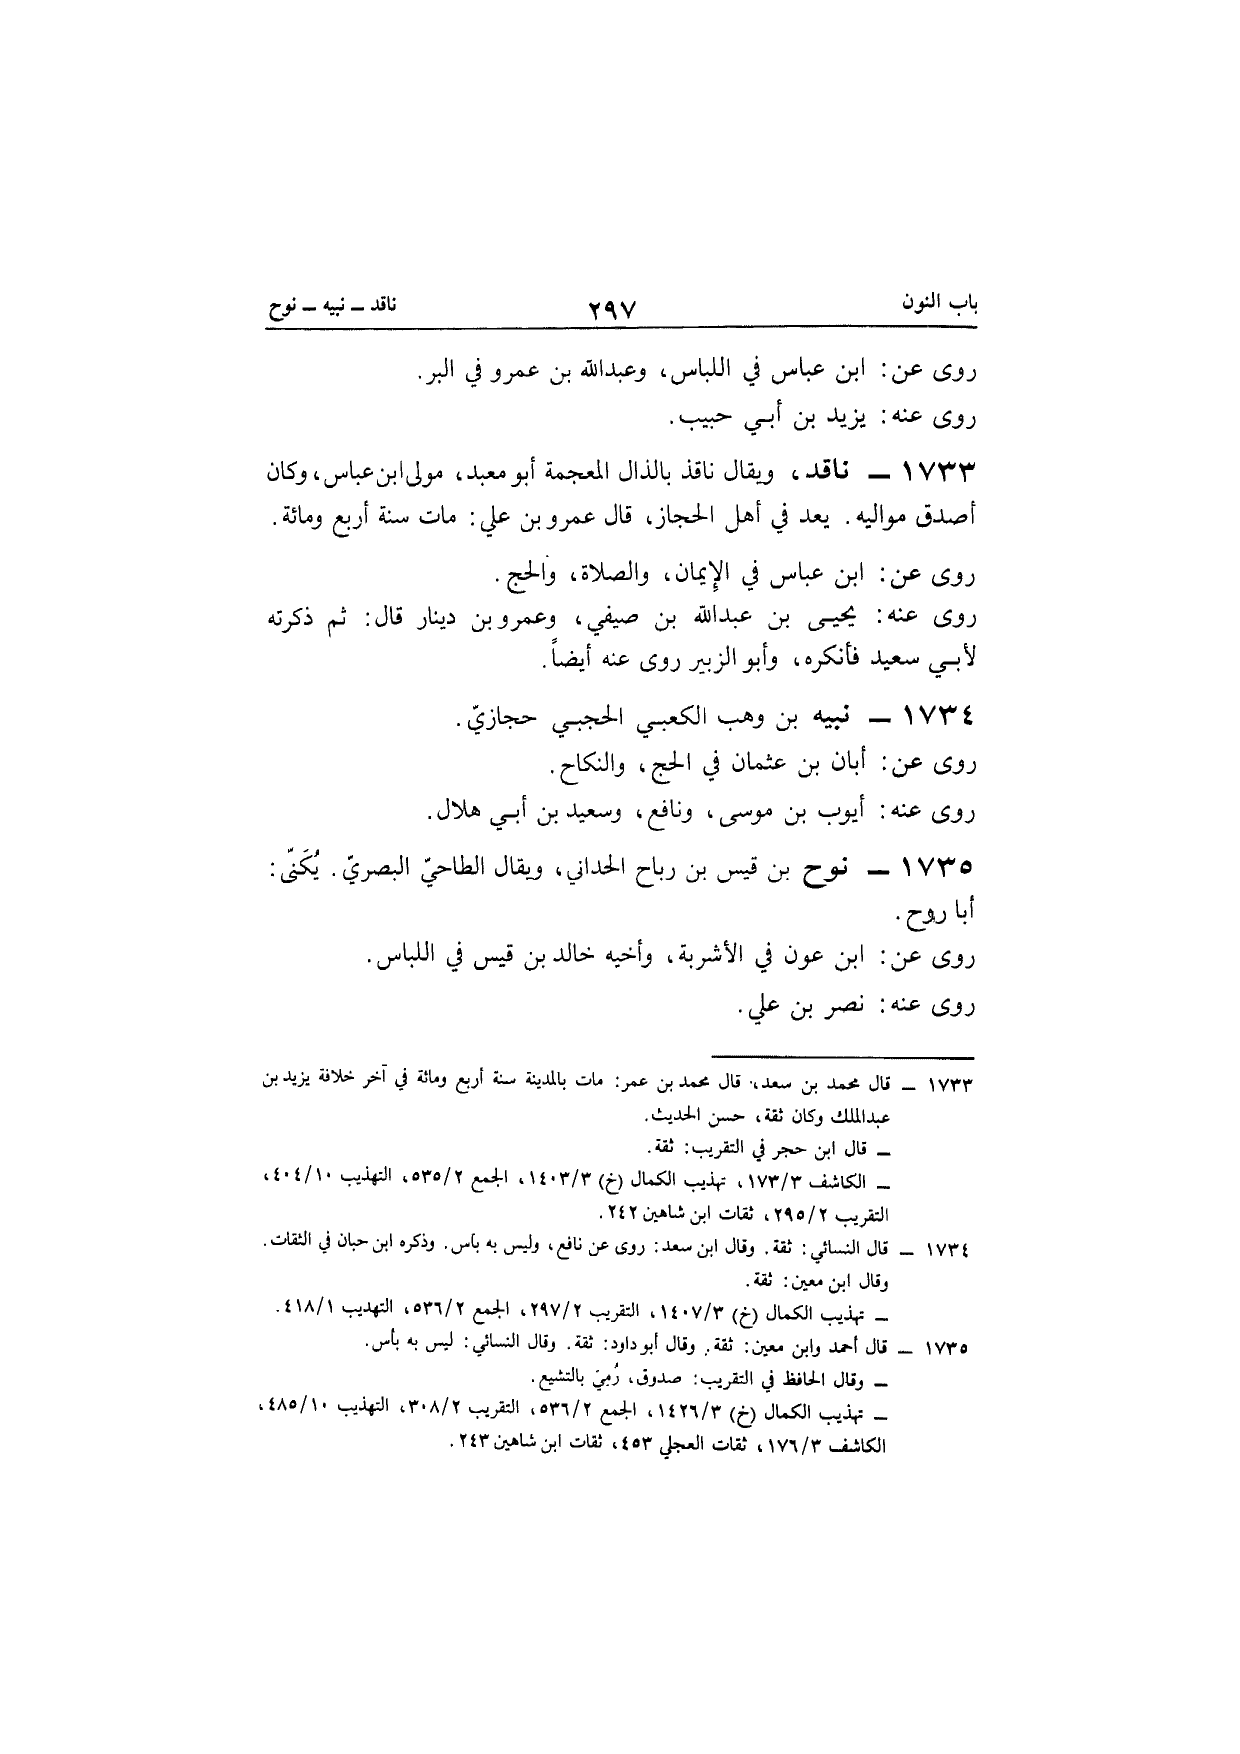 باب النون ٢٩٧ ناقد ــ نبيه ــ نوح
روى عن: ابن عباس في اللباس، وعبدالله بن عمرو في البر.
روى عنه: يزيد بن أبي حبيب.
١٧٣٣ ــ ناقد، ويقال ناقذ بالذال المعجمة أبو معبد، مولى ابن عباس، وكان
أصدق مواليه. يعد في أهل الحجاز، قال عمرو بن علي: مات سنة أربع ومائة.
روى عن: ابن عباس في الإيمان، والصلاة، والحج.
روى عنه: يحيى بن عبدالله بن صيفي، وعمرو بن دينار قال: ثم ذكرته
لأبي سعيد فأنكره، وأبو الزبير روى عنه أيضاً.
١٧٣٤ ــ نبيه بن وهب الكعبي الحجبي حجازيّ.
روى عن: أبان بن عثمان في الحج، والنكاح.
روى عنه: أيوب بن موسى، ونافع، وسعيد بن أبي هلال.
١٧٣٥ ــ نوح بن قيس بن رباح الحداني، ويقال الطاحيّ البصريّ. يُكَنّى:
أبا روح.
روى عن: ابن عون في الأشربة، وأخيه خالد بن قيس في اللباس.
روى عنه: نصر بن علي.
١٧٣٣ ــ قال محمد بن سعد، قال محمد بن عمر: مات بالمدينة سنة أربع ومائة في آخر خلافة يزيد بن
عبدالملك وكان ثقة، حسن الحديث.
ــ قال ابن حجر في التقريب: ثقة.
ــ الكاشف ١٧٣/٣، تهذيب الكمال (خ) ١٤٠٣/٣، الجمع ٥٣٥/٢، التهذيب ٤٠٤/١٠،
التقريب ٢٩٥/٢، ثقات ابن شاهين ٢٤٢.
١٧٣٤ ــ قال النسائي: ثقة. وقال ابن سعد: روى عن نافع، وليس به باس. وذكره ابن حبان في الثقات.
وقال ابن معين: ثقة.
ــ تهذيب الكمال (خ) ١٤٠٧/٣، التقريب ٢٩٧/٢، الجمع ٥٣٦/٢، التهديب ٤١٨/١.
١٧٣٥ ــ قال أحمد وابن معين: ثقة. وقال أبو داود: ثقة. وقال النسائي: ليس به بأس.
ــ وقال الحافظ في التقريب: صدوق، رُمِيَ بالتشيع.
ــ تهذيب الكمال (خ) ١٤٢٦/٣، الجمع ٥٣٦/٢، التقريب ٣٠٨/٢، التهذيب ٤٨٥/١٠،
الكاشف ١٧٦/٣، ثقات العجلي ٤٥٣، ثقات ابن شاهين ٢٤٣.